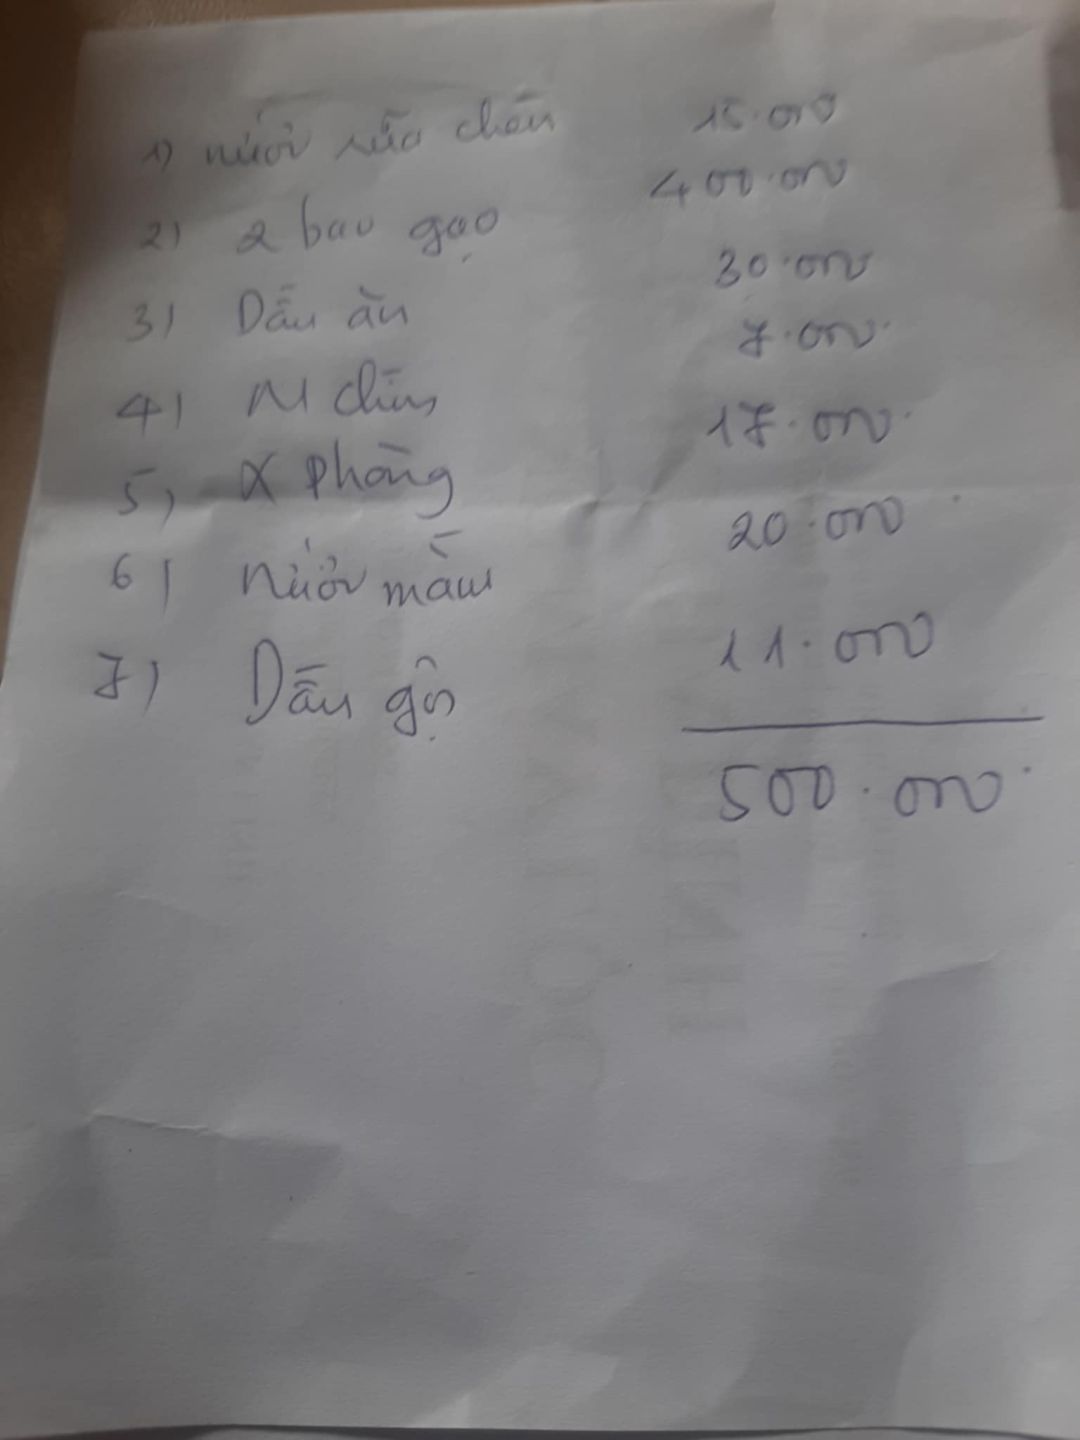 1) nước rửa chén 15.000
2) 2 bao gạo 400.000
3) Dầu ăn 30.000
4) 7.000
5) X phòng 17.000
6) nước mắm 20.000
7) Dầu gội 11.000
500.000